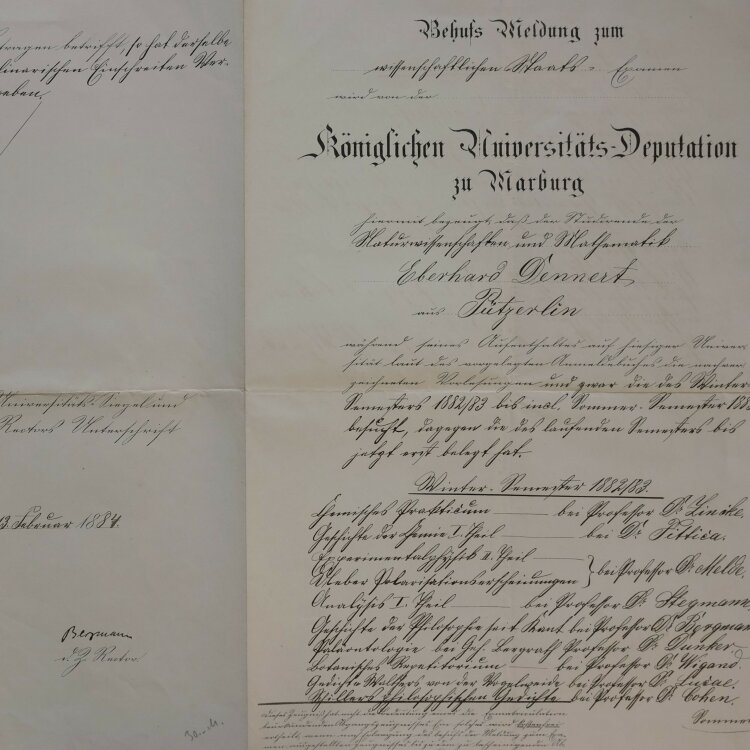 tragen betrifft, so hat derselbe
linarischen Einschreiten Ver-
geben.
Universitäts-Siegel und
Rectors Unterschrift
13. Februar 1884.
Bergmann
d. Z. Rector.
Behufs Meldung zum
wissenschaftlichen Staats-Examen
wird von der
Königlichen Universitäts-Deputation
zu Marburg
hiermit bezeugt, daß der Studirende der
Naturwissenschaften und Mathematik
Eberhard Dennert
aus Pützerlin
während seines Aufenthaltes auf hiesiger Univer-
sität laut des vorgelegten Anmeldebuches die nachver-
zeichneten Vorlesungen und zwar die des Winter-
Semesters 1882/83 bis incl. Sommer-Semester 188
besucht, dagegen die des laufenden Semesters bis
jetzt erst belegt hat.
Winter-Semester 1882/83.
Chemisches Practicum bei Professor Dr. Zincke.
Geschichte der Chemie I. Theil bei Dr. Fittica.
Experimentalphysik II. Theil
Ueber Polarisationserscheinungen } bei Professor Dr. Melde.
Analysis I. Theil bei Professor Dr. Stegmann.
Geschichte der Philosophie seit Kant bei Professor Dr. Bergmann
Paläontologie bei Geh. Bergrath Professor Dr. Dunker.
Botanisches Repetitorium bei Professor Dr. Wigand.
Gedichte Walthers von der Vogelweide bei Professor Dr. Lucae.
Schillers philosophischen Gedichte bei Professor Dr. Cohen.
Sommer
Dieses Zeugniß hat nicht die Bedeutung eines die Exmatriculation
beurkundenden Abgangszeugnisses